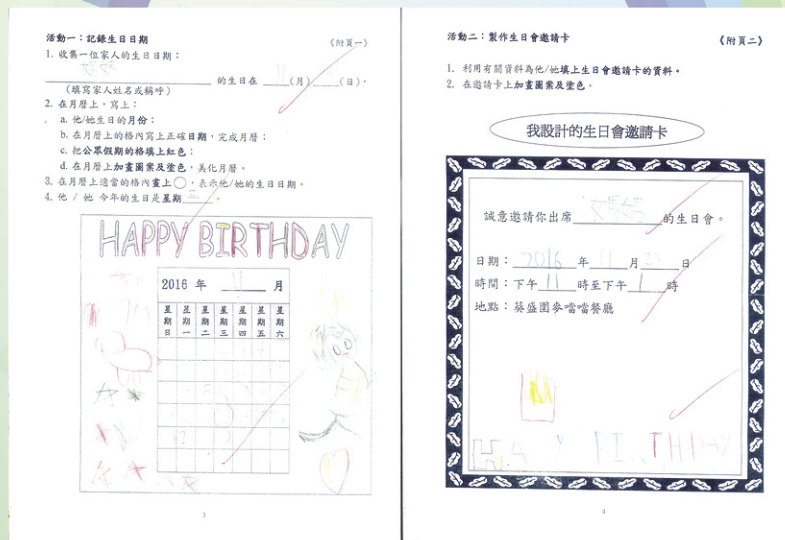 活動一：記錄生日日期
《附頁一》
1. 收集一位家人的生日日期：
媽媽 的生日在 11 (月) (日)。
(填寫家人姓名或稱呼)
2. 在月曆上，寫上：
a. 他/她生日的月份；
b. 在月曆上的格內寫上正確日期，完成月曆；
c. 把公眾假期的格填上紅色；
d. 在月曆上加畫圖案及塗色，美化月曆。
3. 在月曆上適當的格內畫上○，表示他/她的生日日期。
4. 他 / 她 今年的生日是星期 三 。
HAPPY BIRTHDAY
2016 年 11 月
星期日 星期一 星期二 星期三 星期四 星期五 星期六
3
活動二：製作生日會邀請卡
《附頁二》
1. 利用有關資料為他/她填上生日會邀請卡的資料。
2. 在邀請卡上加畫圖案及塗色。
我設計的生日會邀請卡
誠意邀請你出席 媽媽 的生日會。
日期： 2016 年 11 月 23 日
時間：下午 11 時至下午 1 時
地點：葵盛圍麥噹噹餐廳
M
HAPPY BIRTHDAY
4